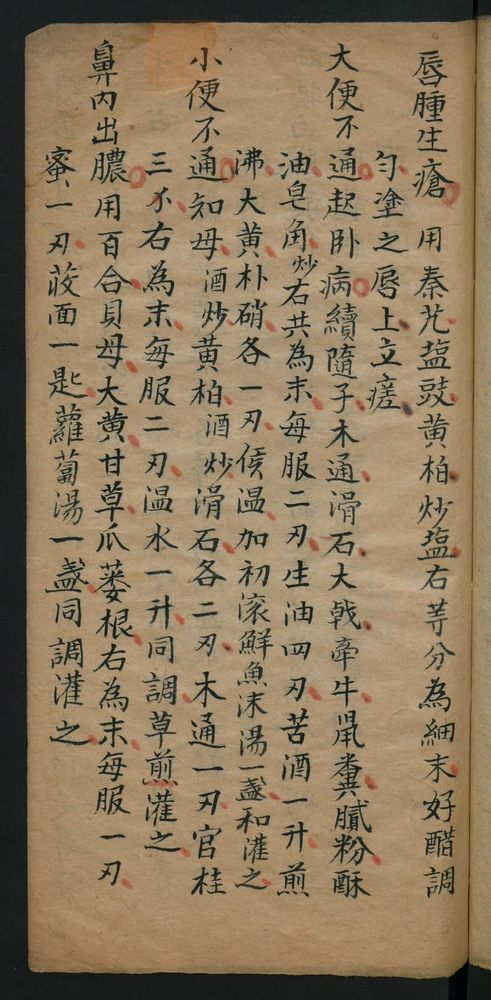 唇腫生瘡　用秦艽塩豉黄柏炒塩右等分為細末好醋調
勻塗之唇上立瘥
大便不通起卧病續隨子木通滑石大戟牽牛鼡糞膩粉酥
油皂角炒右共為末每服二刄生油四刄苦酒一升煎
沸大黄朴硝各一刄侯温加初滚鮮魚沫湯一盞和灌之
小便不通知母酒炒黄柏酒炒滑石各二刄木通一刄官桂
三个右為末每服二刄温水一升同調草煎灌之
鼻内出膿用百合貝母大黄甘草瓜蒌根右為末每服一刄
蜜一刄荍面一匙蘿蔔湯一盞同調灌之